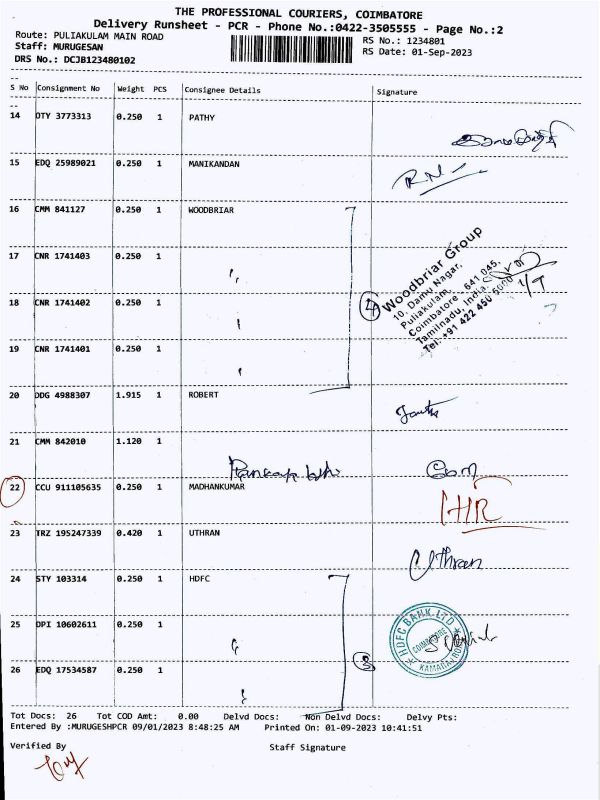 THE PROFESSIONAL COURIERS, COIMBATORE
Delivery Runsheet - PCR - Phone No.:0422-3505555 - Page No.:2
Route: PULIAKULAM MAIN ROAD
RS No.: 1234801
Staff: MURUGESAN
RS Date: 01-Sep-2023
DRS No.: DCJB123480102
S No Consignment No Weight PCS Consignee Details Signature
14 OTY 3773313 0.250 1 PATHY
15 EDQ 25989021 0.250 1 MANIKANDAN
16 CMM 841127 0.250 1 WOODBRIAR
17 CNR 1741403 0.250 1 "
18 CNR 1741402 0.250 1
19 CNR 1741401 0.250 1
4
Woodbriar Group
10, Damu Nagar,
Puliakulam,
Coimbatore - 641 045.
Tamilnadu, India.
Tel: +91 422 450 5000
20 DDG 4988307 1.915 1 ROBERT
21 CMM 842010 1.120 1
22 CCU 911105635 0.250 1 MADHANKUMAR
23 TRZ 195247339 0.420 1 UTHRAN Uthran
24 STY 103314 0.250 1 HDFC
25 DPI 10602611 0.250 1
26 EDQ 17534587 0.250 1
3
HDFC BANK LTD
Tot Docs: 26 Tot COD Amt: 0.00 Delvd Docs: Non Delvd Docs: Delvy Pts:
Entered By :MURUGESHPCR 09/01/2023 8:48:25 AM Printed On: 01-09-2023 10:41:51
Verified By Staff Signature